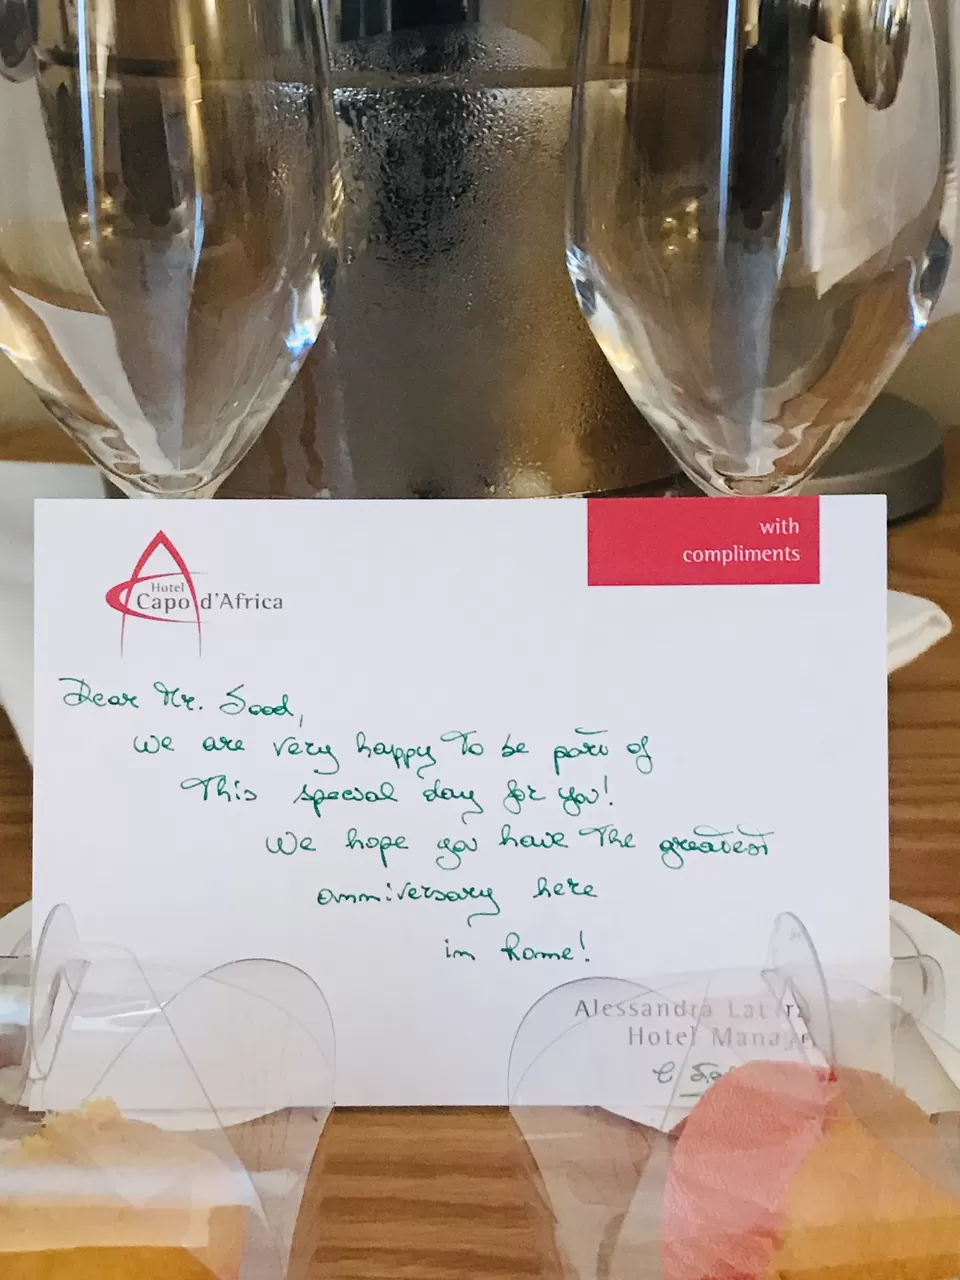 with
compliments
Hotel
Capo d'Africa
Dear Mr. Sood,
we are very happy to be part of
This special day for you!
We hope you have the greatest
anniversary here
in Rome!
Alessandra
Hotel Manager